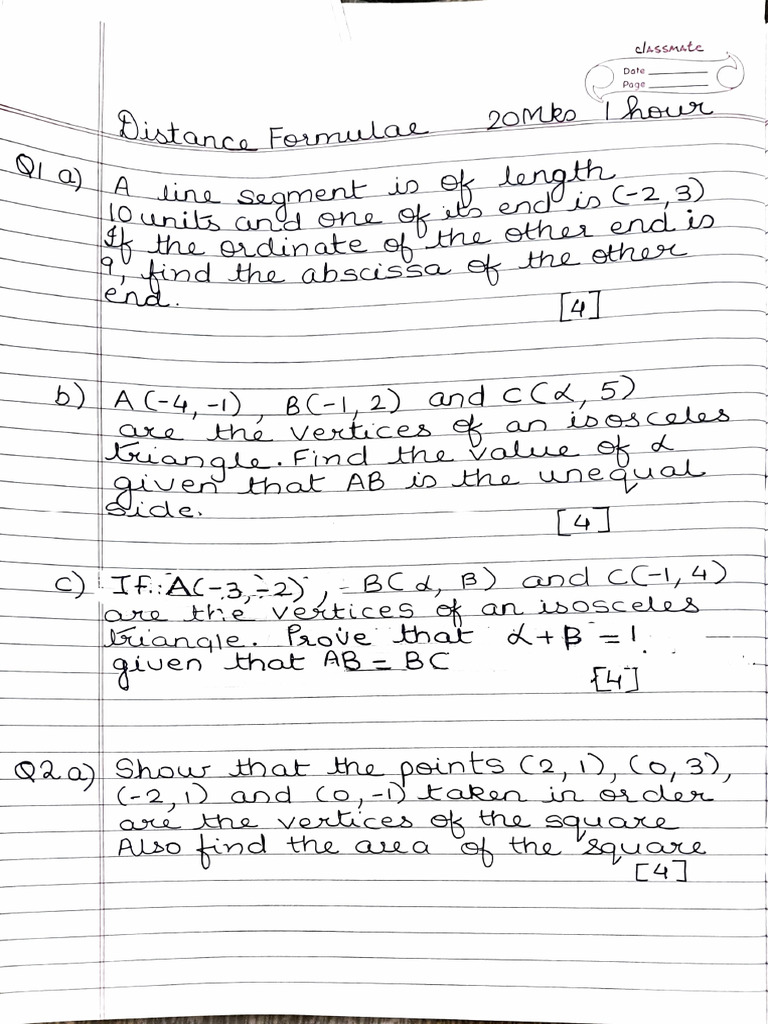 classmate
Date
Page
Distance Formulae 20Mks 1 hour
Q1 a) A line segment is of length
10 units and one of its end is (-2, 3)
If the ordinate of the other end is
9, find the abscissa of the other
end.
[4]
b) A(-4, -1), B(-1, 2) and C(α, 5)
are the vertices of an isosceles
triangle. Find the value of α
given that AB is the unequal
side.
[4]
c) If A(-3, -2), B(α, β) and C(-1, 4)
are the vertices of an isosceles
triangle. Prove that α + β = 1
given that AB = BC
[4]
Q2 a) Show that the points (2, 1), (0, 3),
(-2, 1) and (0, -1) taken in order
are the vertices of the square
Also find the area of the square
[4]